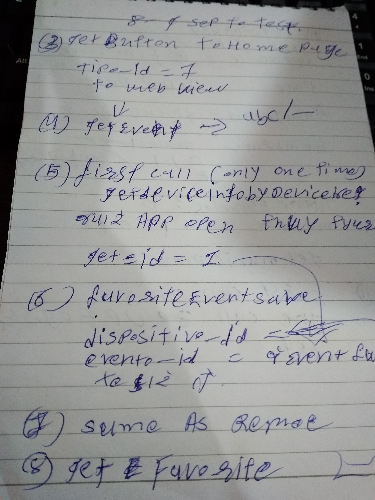 (3) get Button to Home page
Tipo-Id = 7
to web view
(4) get Event → abc/—
(5) first call (only one time)
getdeviceinfobyDevice
APP open
get id = 1
(6) favoriteEventsave
dispositivo-Id =
evento-id = event
to
(7) same As
(8) get Favorite